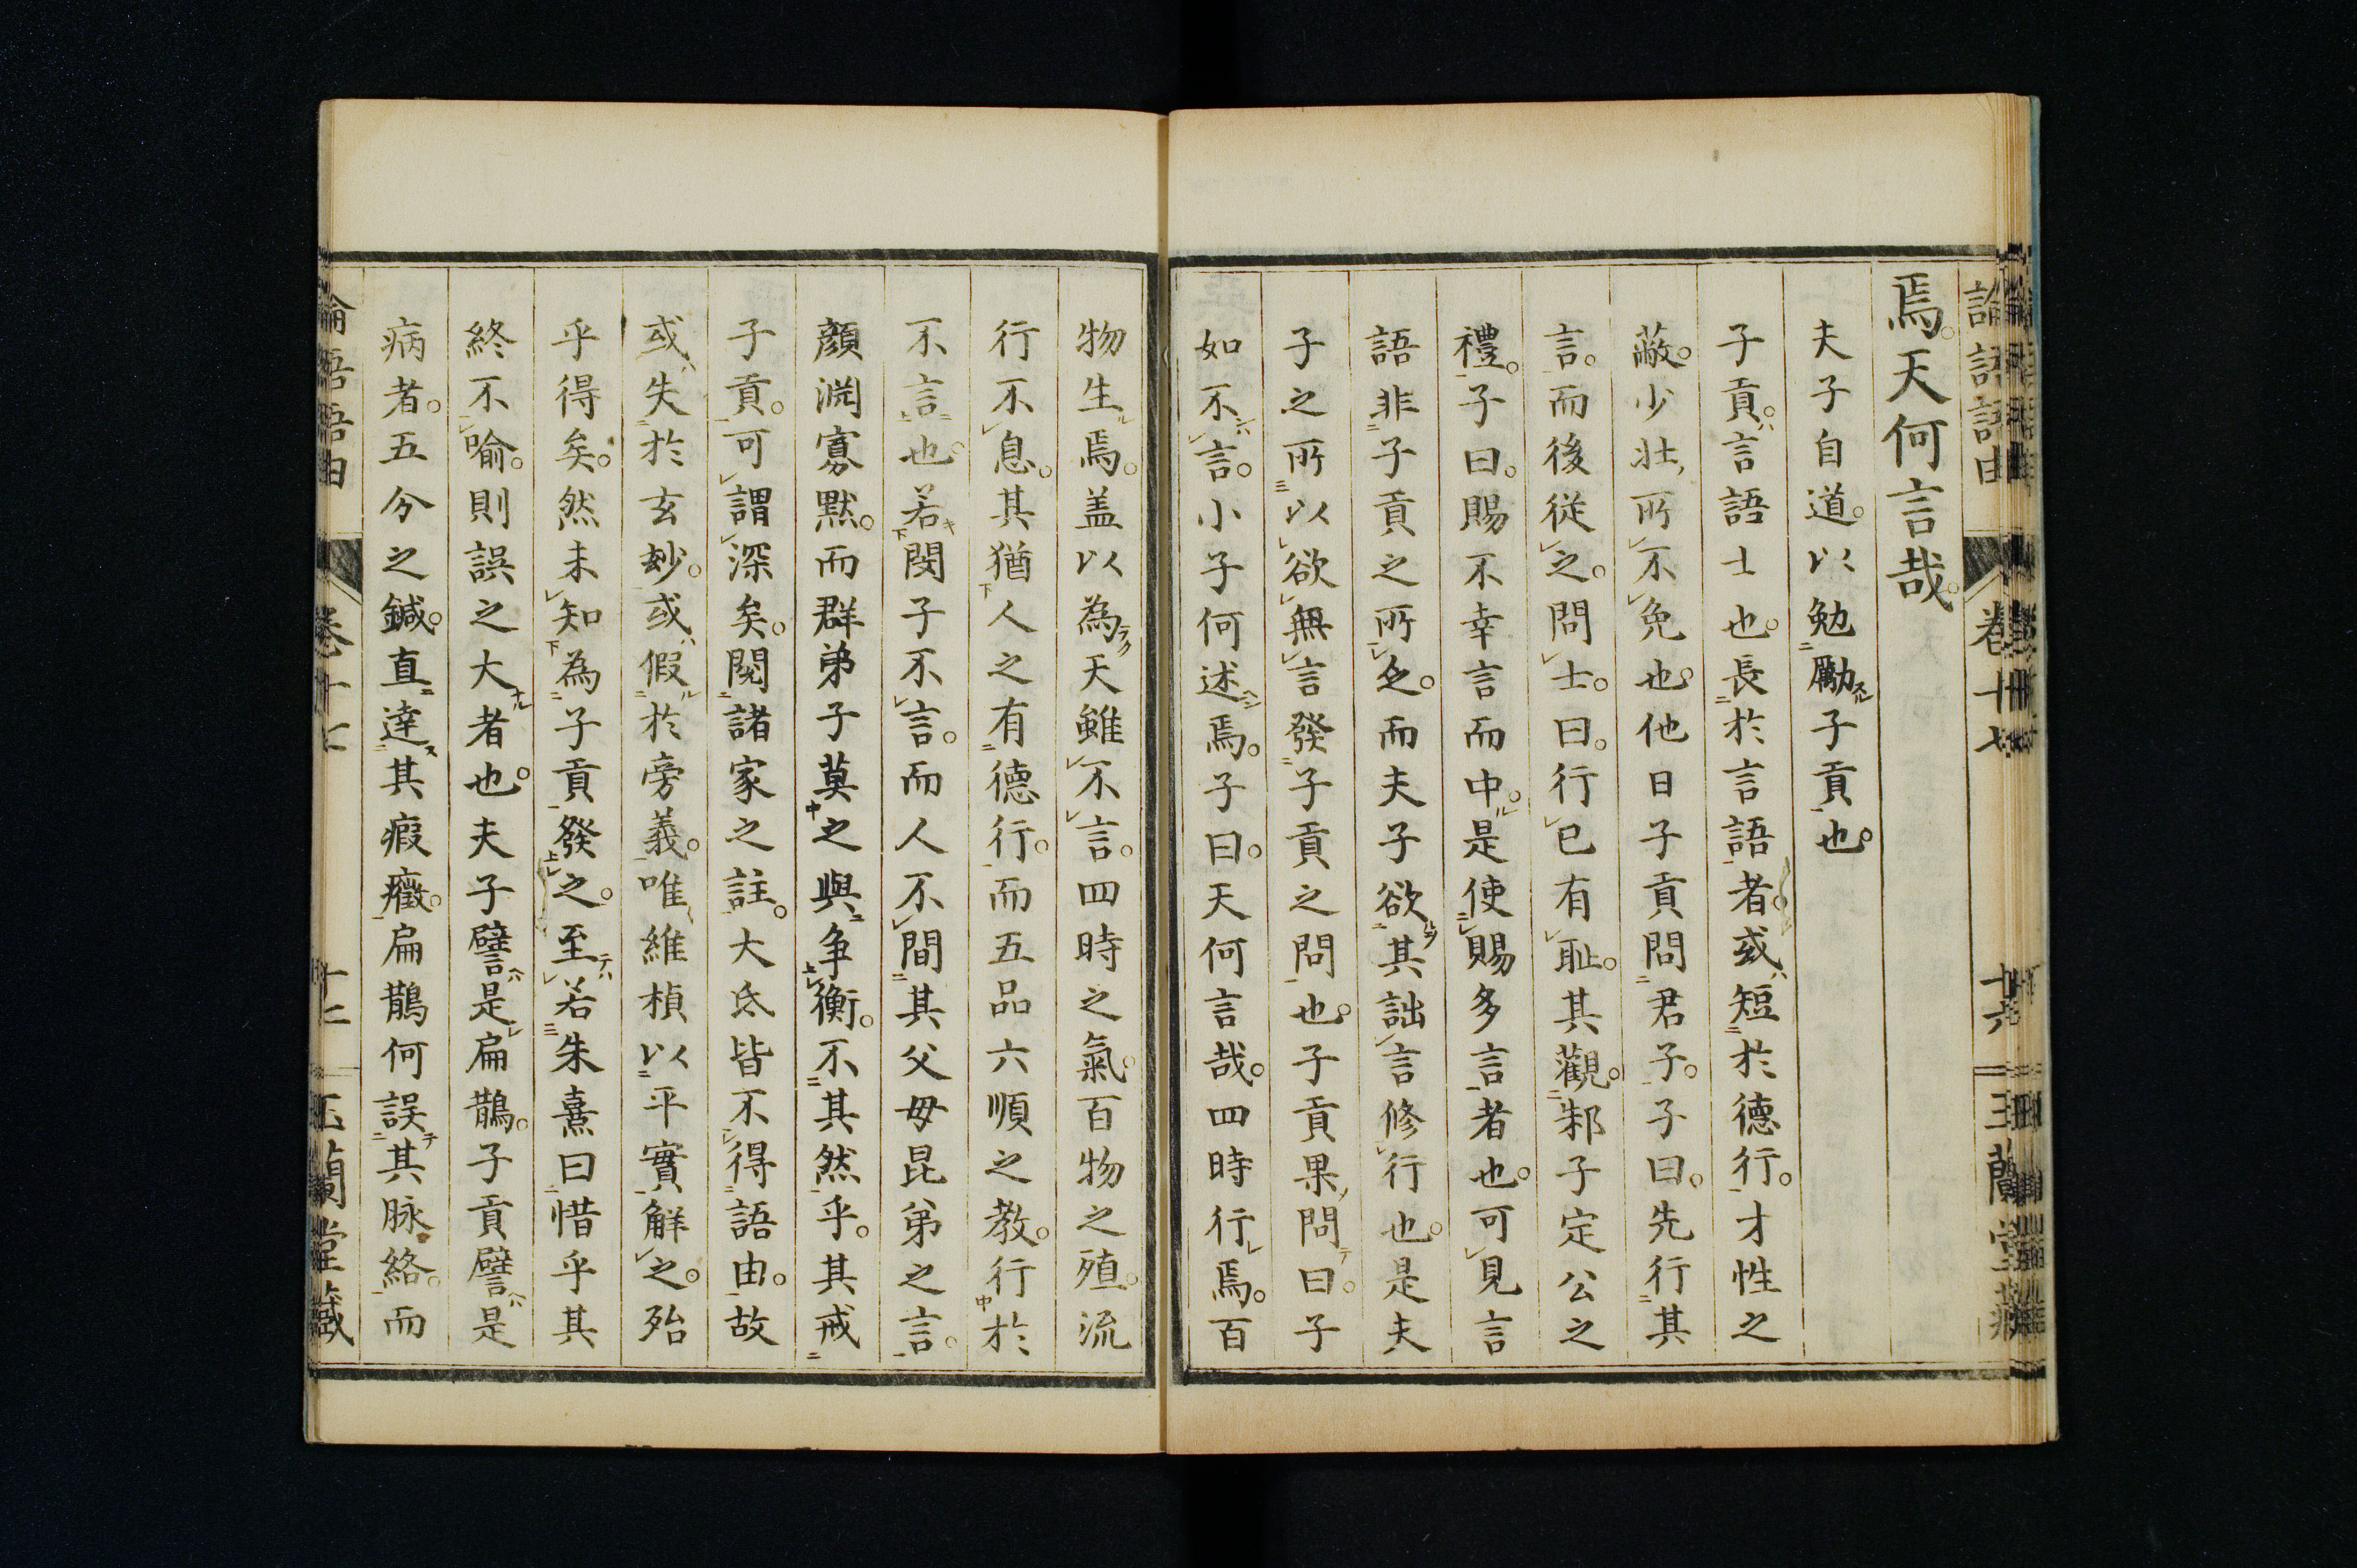 論語語由 卷十七 十六 玉蘭堂藏
焉。天何言哉。
夫子自道。以勉勵子貢也。
子貢。言語士也。長於言語者。或短於德行。才性之
蔽。少壯所不免也。他日子貢問君子。子曰。先行其
言。而後從之。問士。曰。行己有恥。其觀邾子定公之
禮。子曰。賜不幸言而中。是使賜多言者也。可見言
語非子貢之所乏。而夫子欲其訥言修行也。是夫
子之所以欲無言發子貢之問也。子貢果問曰。子
如不言。小子何述焉。子曰。天何言哉。四時行焉。百
物生焉。盖以為天雖不言。四時之氣。百物之殖。流
行不息。其猶人之有德行。而五品六順之教。行於
不言也。若閔子不言。而人不間其父母昆弟之言。
顏淵寡默。而群弟子莫之與爭衡。不其然乎。其戒
子貢。可謂深矣。閱諸家之註。大氐皆不得語由。故
或失於玄玅。或假於旁義。唯維楨以平實解之。殆
乎得矣。然未知為子貢發之。至若朱熹曰惜乎其
終不喻。則誤之大者也。夫子譬是扁鵲。子貢譬是
病者。五分之鍼。直達其瘕癥。扁鵲何誤其脉絡。而
論語語由 卷十七 十七 玉蘭堂藏